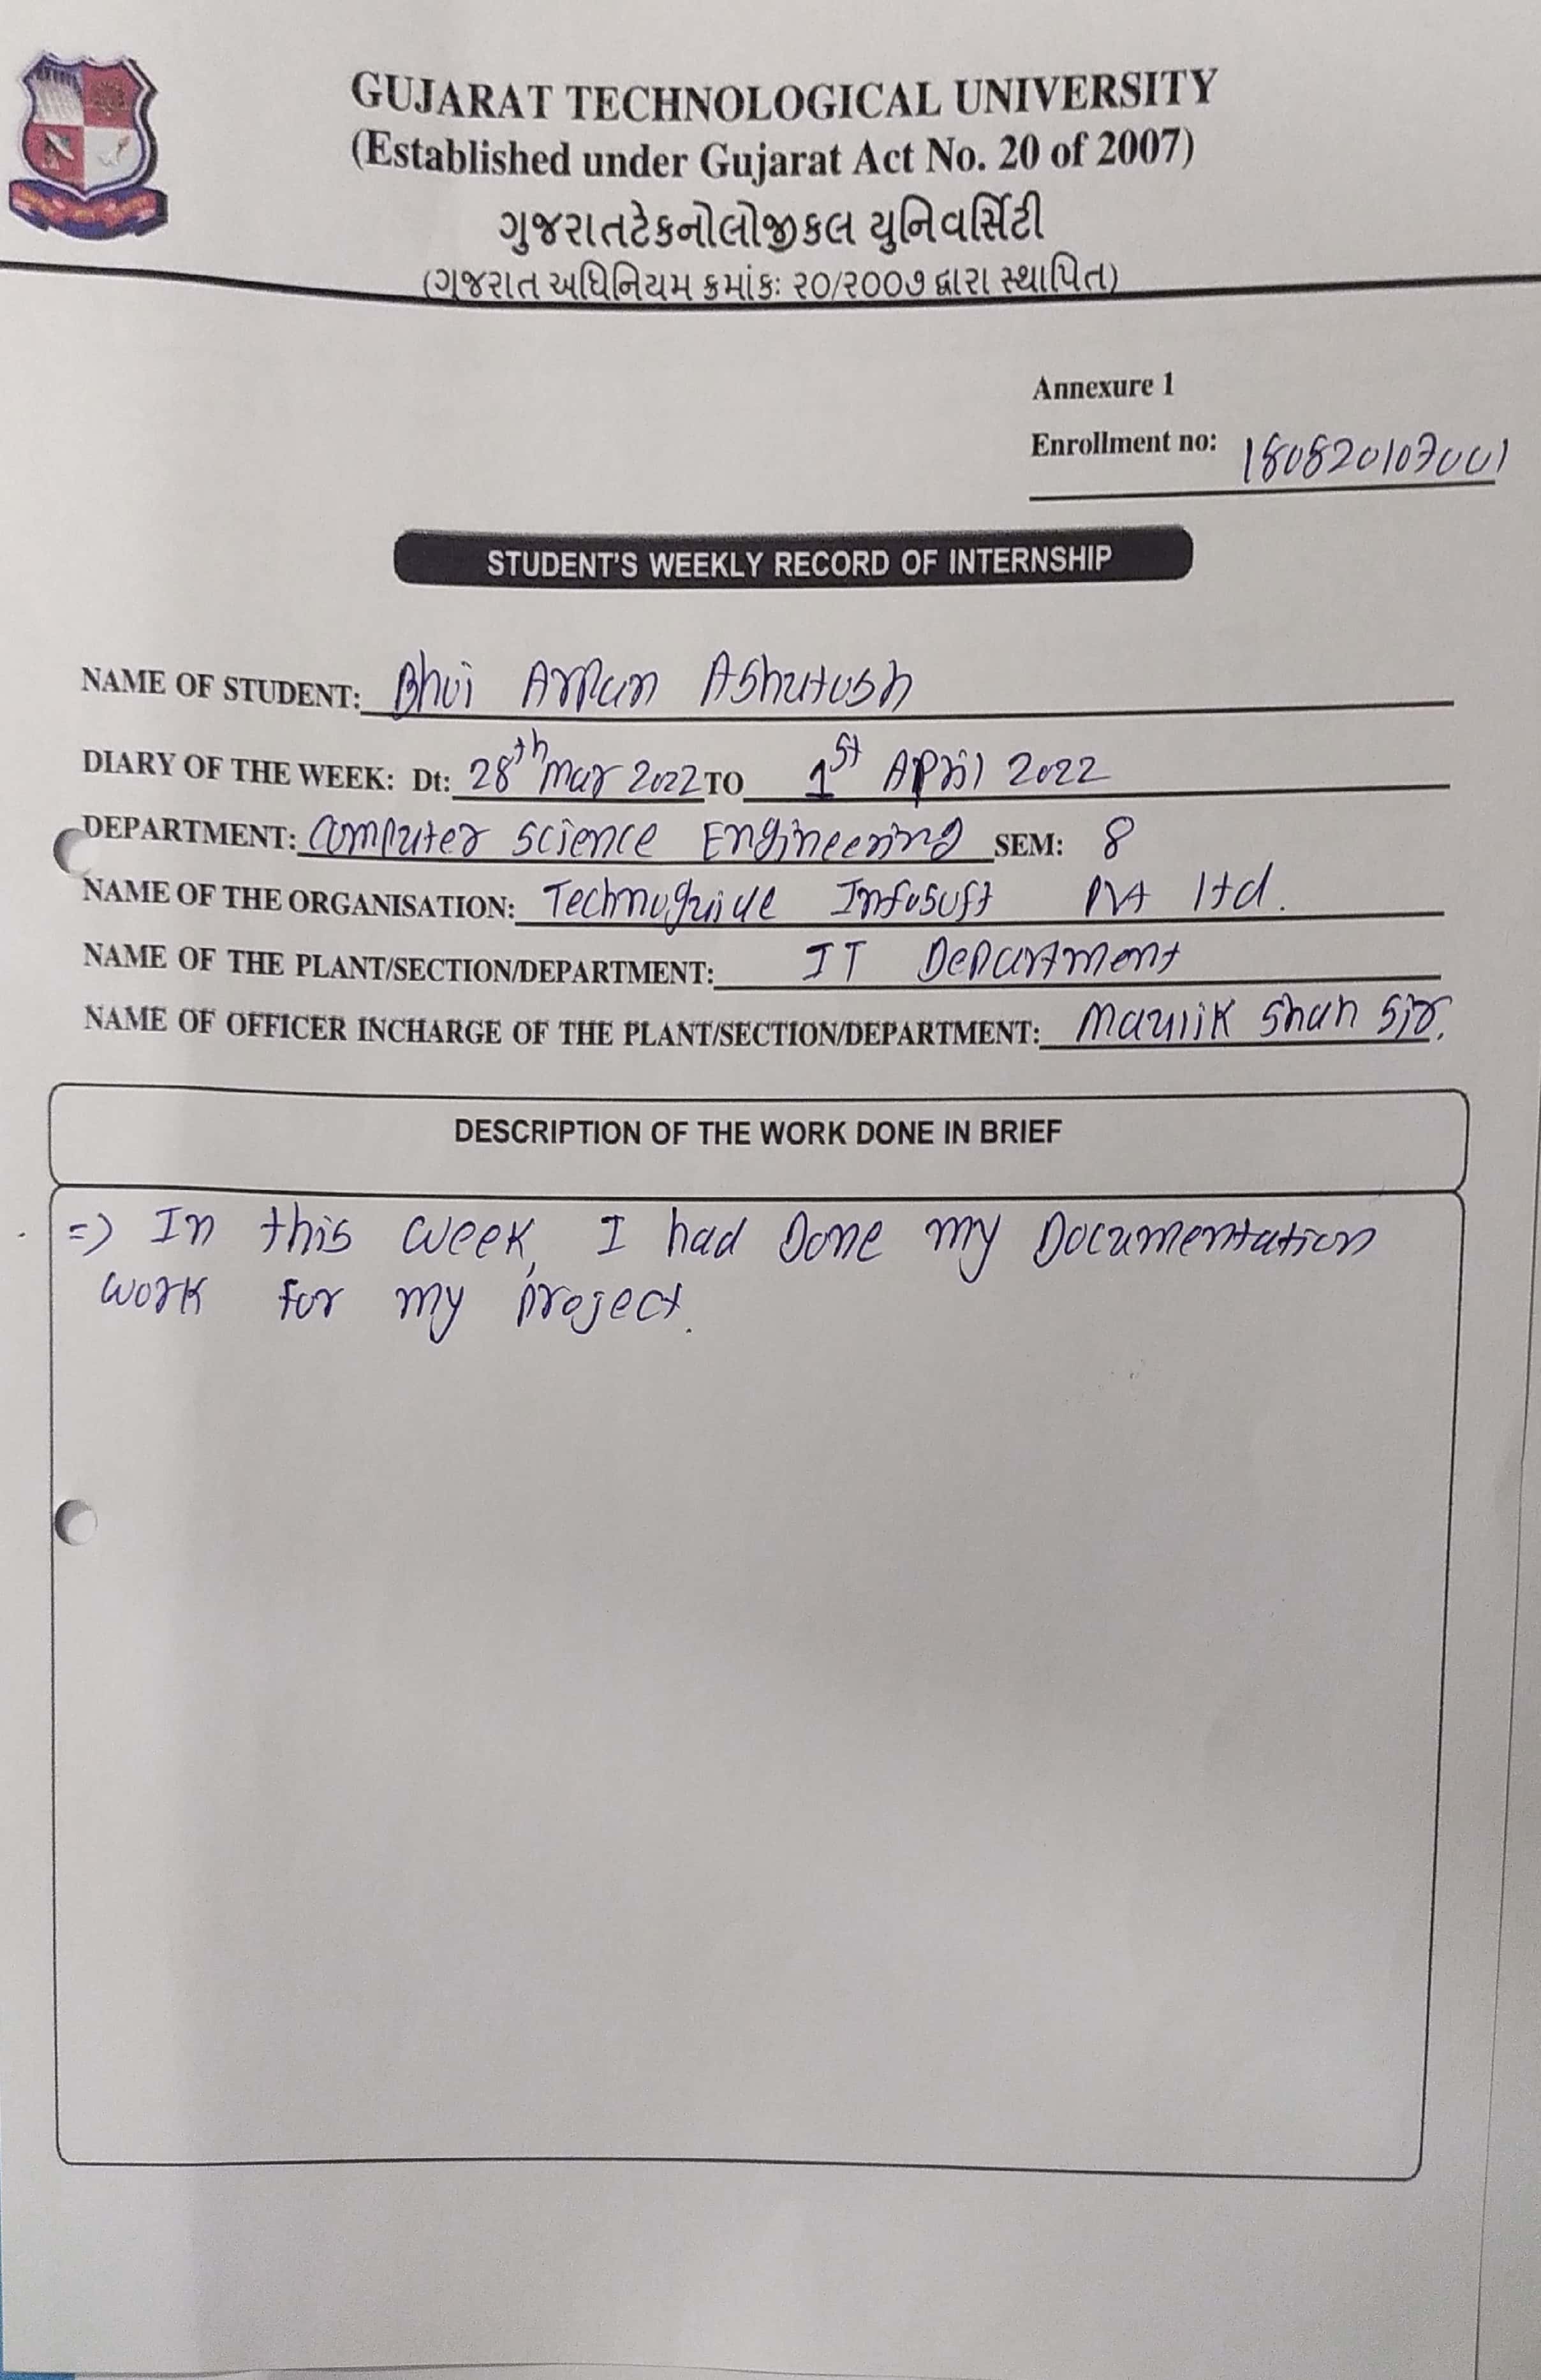 GUJARAT TECHNOLOGICAL UNIVERSITY
(Established under Gujarat Act No. 20 of 2007)
ગુજરાતટેકનોલોજીકલ યુનિવર્સિટી
(ગુજરાત અધિનિયમ ક્રમાંકઃ ૨૦/૨૦૦૭ દ્વારા સ્થાપિત)
Annexure 1
Enrollment no: 180820107001
STUDENT'S WEEKLY RECORD OF INTERNSHIP
NAME OF STUDENT: Bhoi Arpan Ashutosh
DIARY OF THE WEEK: Dt: 28th Mar 2022 TO 1st April 2022
DEPARTMENT: Computer Science Engineering SEM: 8
NAME OF THE ORGANISATION: Technoguide Infosoft Pvt ltd.
NAME OF THE PLANT/SECTION/DEPARTMENT: IT Department
NAME OF OFFICER INCHARGE OF THE PLANT/SECTION/DEPARTMENT: Maulik Shah Sir.
DESCRIPTION OF THE WORK DONE IN BRIEF
=> In this week, I had Done my Documentation
work for my project.